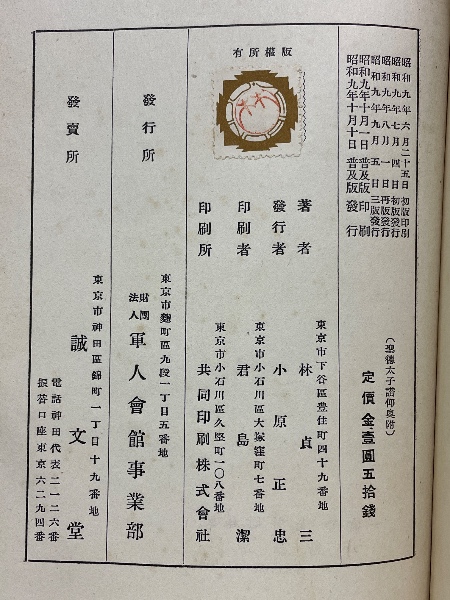 昭和九年六月二十五日初版印刷
昭和九年七月四日初版發行
昭和九年八月一日再版發行
昭和九年九月五日三版發行
昭和九年十月一日普及版印刷
昭和九年十月十日普及版發行
(聖德太子讃仰奧附)
定價金壹圓五拾錢
版權所有
東京市下谷區豊住町四十九番地
著者 林貞三
發行者 小原正忠
東京市小石川區大塚窪町七番地
印刷者 君島潔
東京市小石川區久堅町一〇八番地
印刷所 共同印刷株式會社
東京市麴町區九段一丁目五番地
發行所 財團法人 軍人會館事業部
東京市神田區錦町一丁目十九番地
發賣所 誠文堂
電話神田代表二一二六番
振替口座東京六二九四番